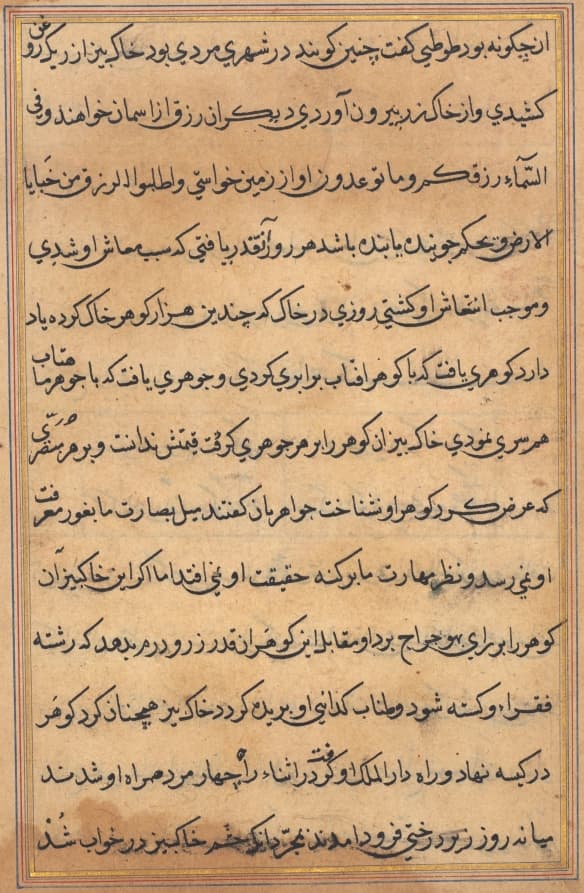 ان چگونه بود طوطی کفت چنین کویند در شهری مردی بود خاک بیز از ریک روغن
کشیدی و از خاک زر بیرون آوردی دیکران رزق از اسمان خواهند و فی
السّمآء رزقکم و ما توعدون او از زمین خواستی و اطلبوا الرزق من خبایا
الارض و بحکم جوینده یابنده باشد هر روز آنقدر یافتی که سبب معاش او شدی
و موجب انتعاش او کشتی روزی در خاک که چندین هزار کوهر خاک کرده یاد
دارد کوهری یافت که با کوهر افتاب برابری کردی و جوهری یافت که با جوهر ماهتاب
هم سری نمودی خاک بیز ان کوهر را بر هر جوهری کرفت قیمتش ندانست و بر هر مبصّری
که عرض کرد کوهر او نشناخت جواهریان کفتند میل بصارت ما بغور معرفت
او نمی رسد و نظر مهارت ما برکنه حقیقت او نمی افتد اما اکر این خاکبیز آن
کوهر را برای بهوجراج برد او مقابله این کوهر ان قدر زر و درم بدهد که رشته
فقر او کسسته شود و طناب کدائی او بریده کردد خاک بیز همچنان کرد کوهر
در کیسه نهاد و راه دار الملک او کرفت در اثناء راه چهار مرد همراه او شدند
میانه روز زیر درختی فرود امدند بمجرّد انکه چشم خاکبیز در خواب شُدْ